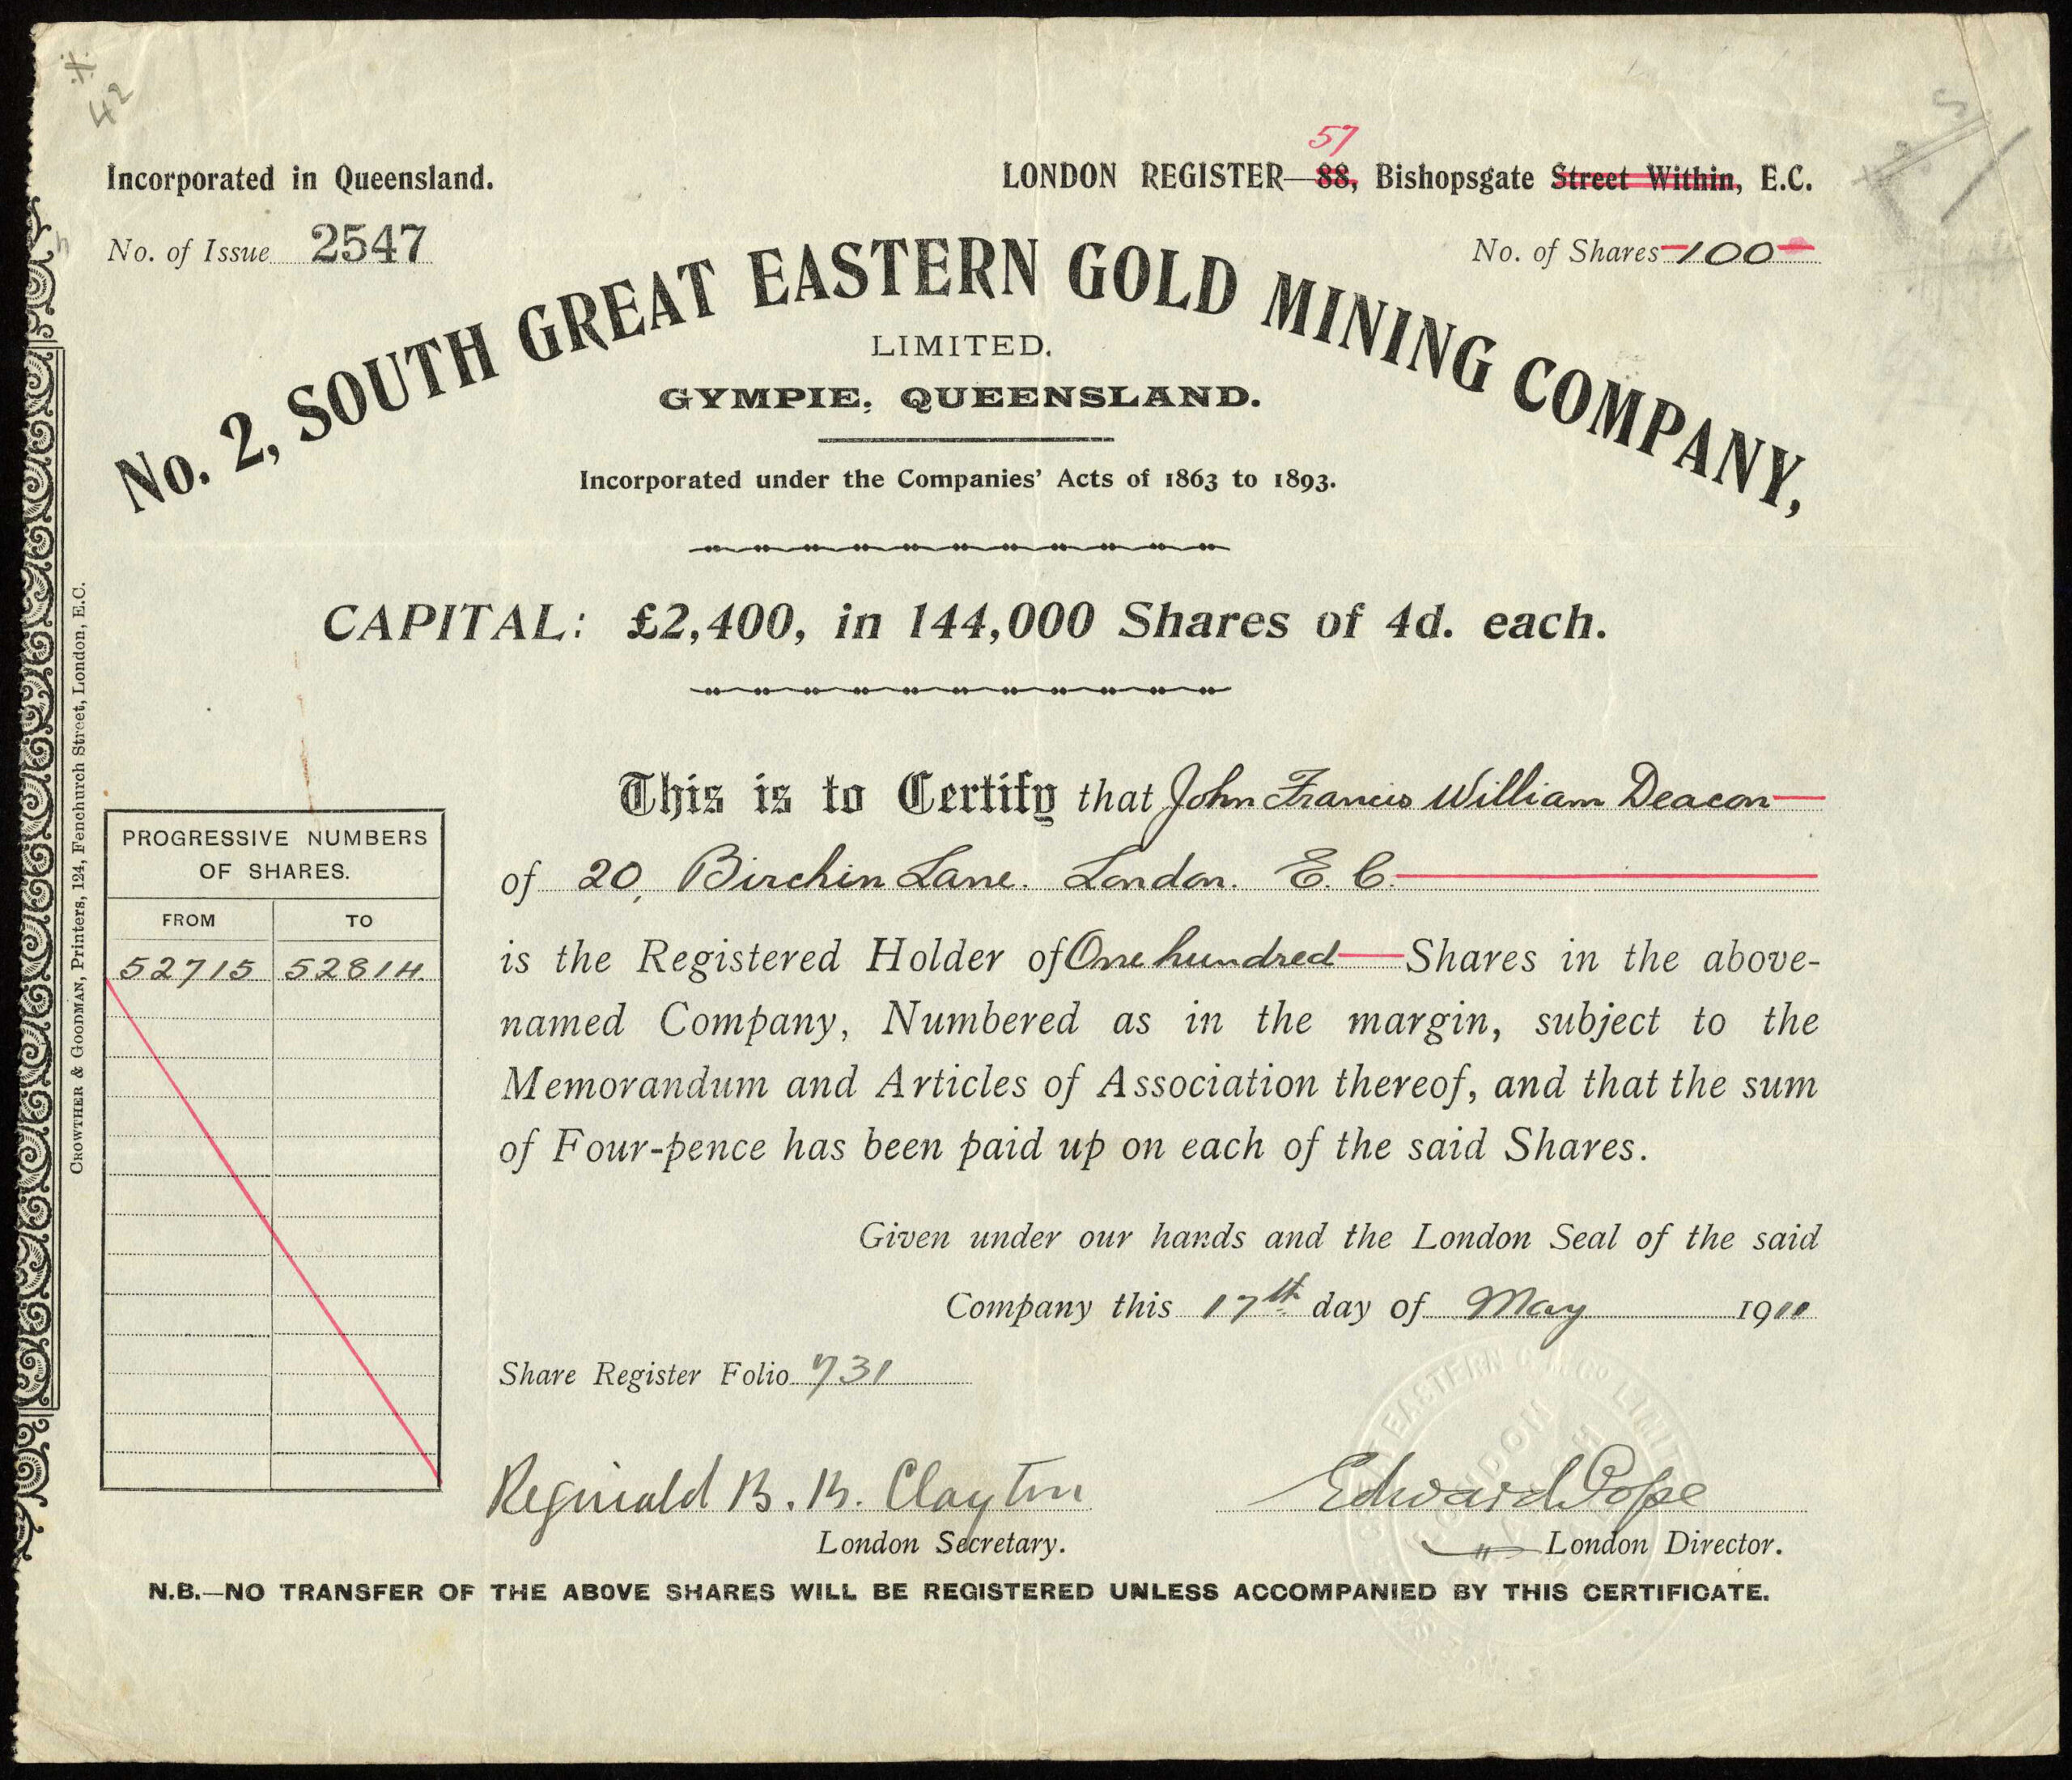 42
57
Incorporated in Queensland.
LONDON REGISTER—88, Bishopsgate Street Within, E.C.
No. of Issue 2547
No. of Shares 100
No. 2, SOUTH GREAT EASTERN GOLD MINING COMPANY,
LIMITED.
GYMPIE, QUEENSLAND.
Incorporated under the Companies' Acts of 1863 to 1893.
CAPITAL: £2,400, in 144,000 Shares of 4d. each.
This is to Certify that John Francis William Deacon
of 20, Birchin Lane. London. E.C.
is the Registered Holder of One hundred Shares in the above-
named Company, Numbered as in the margin, subject to the
Memorandum and Articles of Association thereof, and that the sum
of Four-pence has been paid up on each of the said Shares.
PROGRESSIVE NUMBERS
OF SHARES.
FROM TO
52715 52814
Given under our hands and the London Seal of the said
Company this 17th day of May 1911
Share Register Folio 731
Reginald B. B. Clayton
London Secretary.
Edward Pope
London Director.
N.B.—NO TRANSFER OF THE ABOVE SHARES WILL BE REGISTERED UNLESS ACCOMPANIED BY THIS CERTIFICATE.
CROWTHER & GOODMAN, Printers, 124, Fenchurch Street, London, E.C.
EASTERN
LIMIT
LONDON